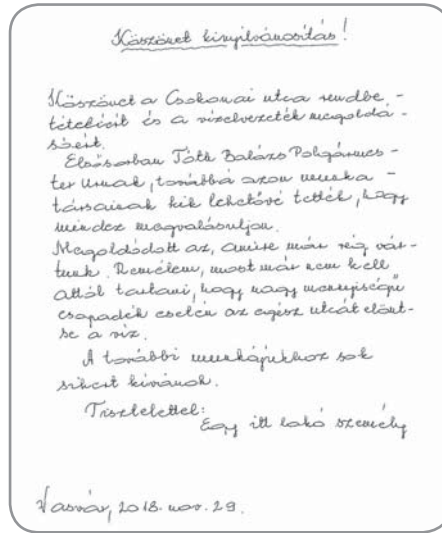 Köszönet kinyilvánosítás!
Köszönet a Csokonai utca rendbe-
tételéért és a vízelvezeték megoldá-
sáért.
Elsősorban Tóth Balázs Polgármes-
ter Urnak, továbbá azon munka-
társainak kik lehetővé tették, hogy
mindez megvalósuljon.
Megoldódott az, amire már rég vár-
tunk. Remélem, most már nem kell
attól tartani, hogy nagy mennyiségű
csapadék esetén az egész utcát elönt-
se a víz.
A további munkájukhoz sok
sikert kívánok.
Tisztelettel:
Egy itt lakó személy
Vasvár, 2018. nov. 29.